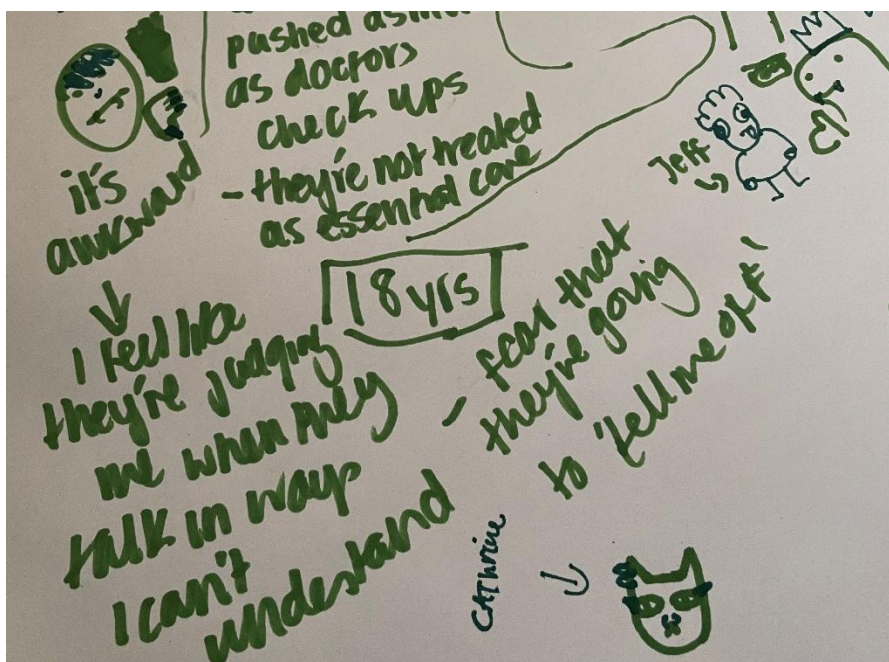 pushed
as doctors
check ups
- they're not treated
as essential care
it's
awkward
I feel like
they're judging
me when they
talk in ways
I can't
understand
18 yrs
- fear that
they're going
to 'tell me off'
Jeff
CAThrine